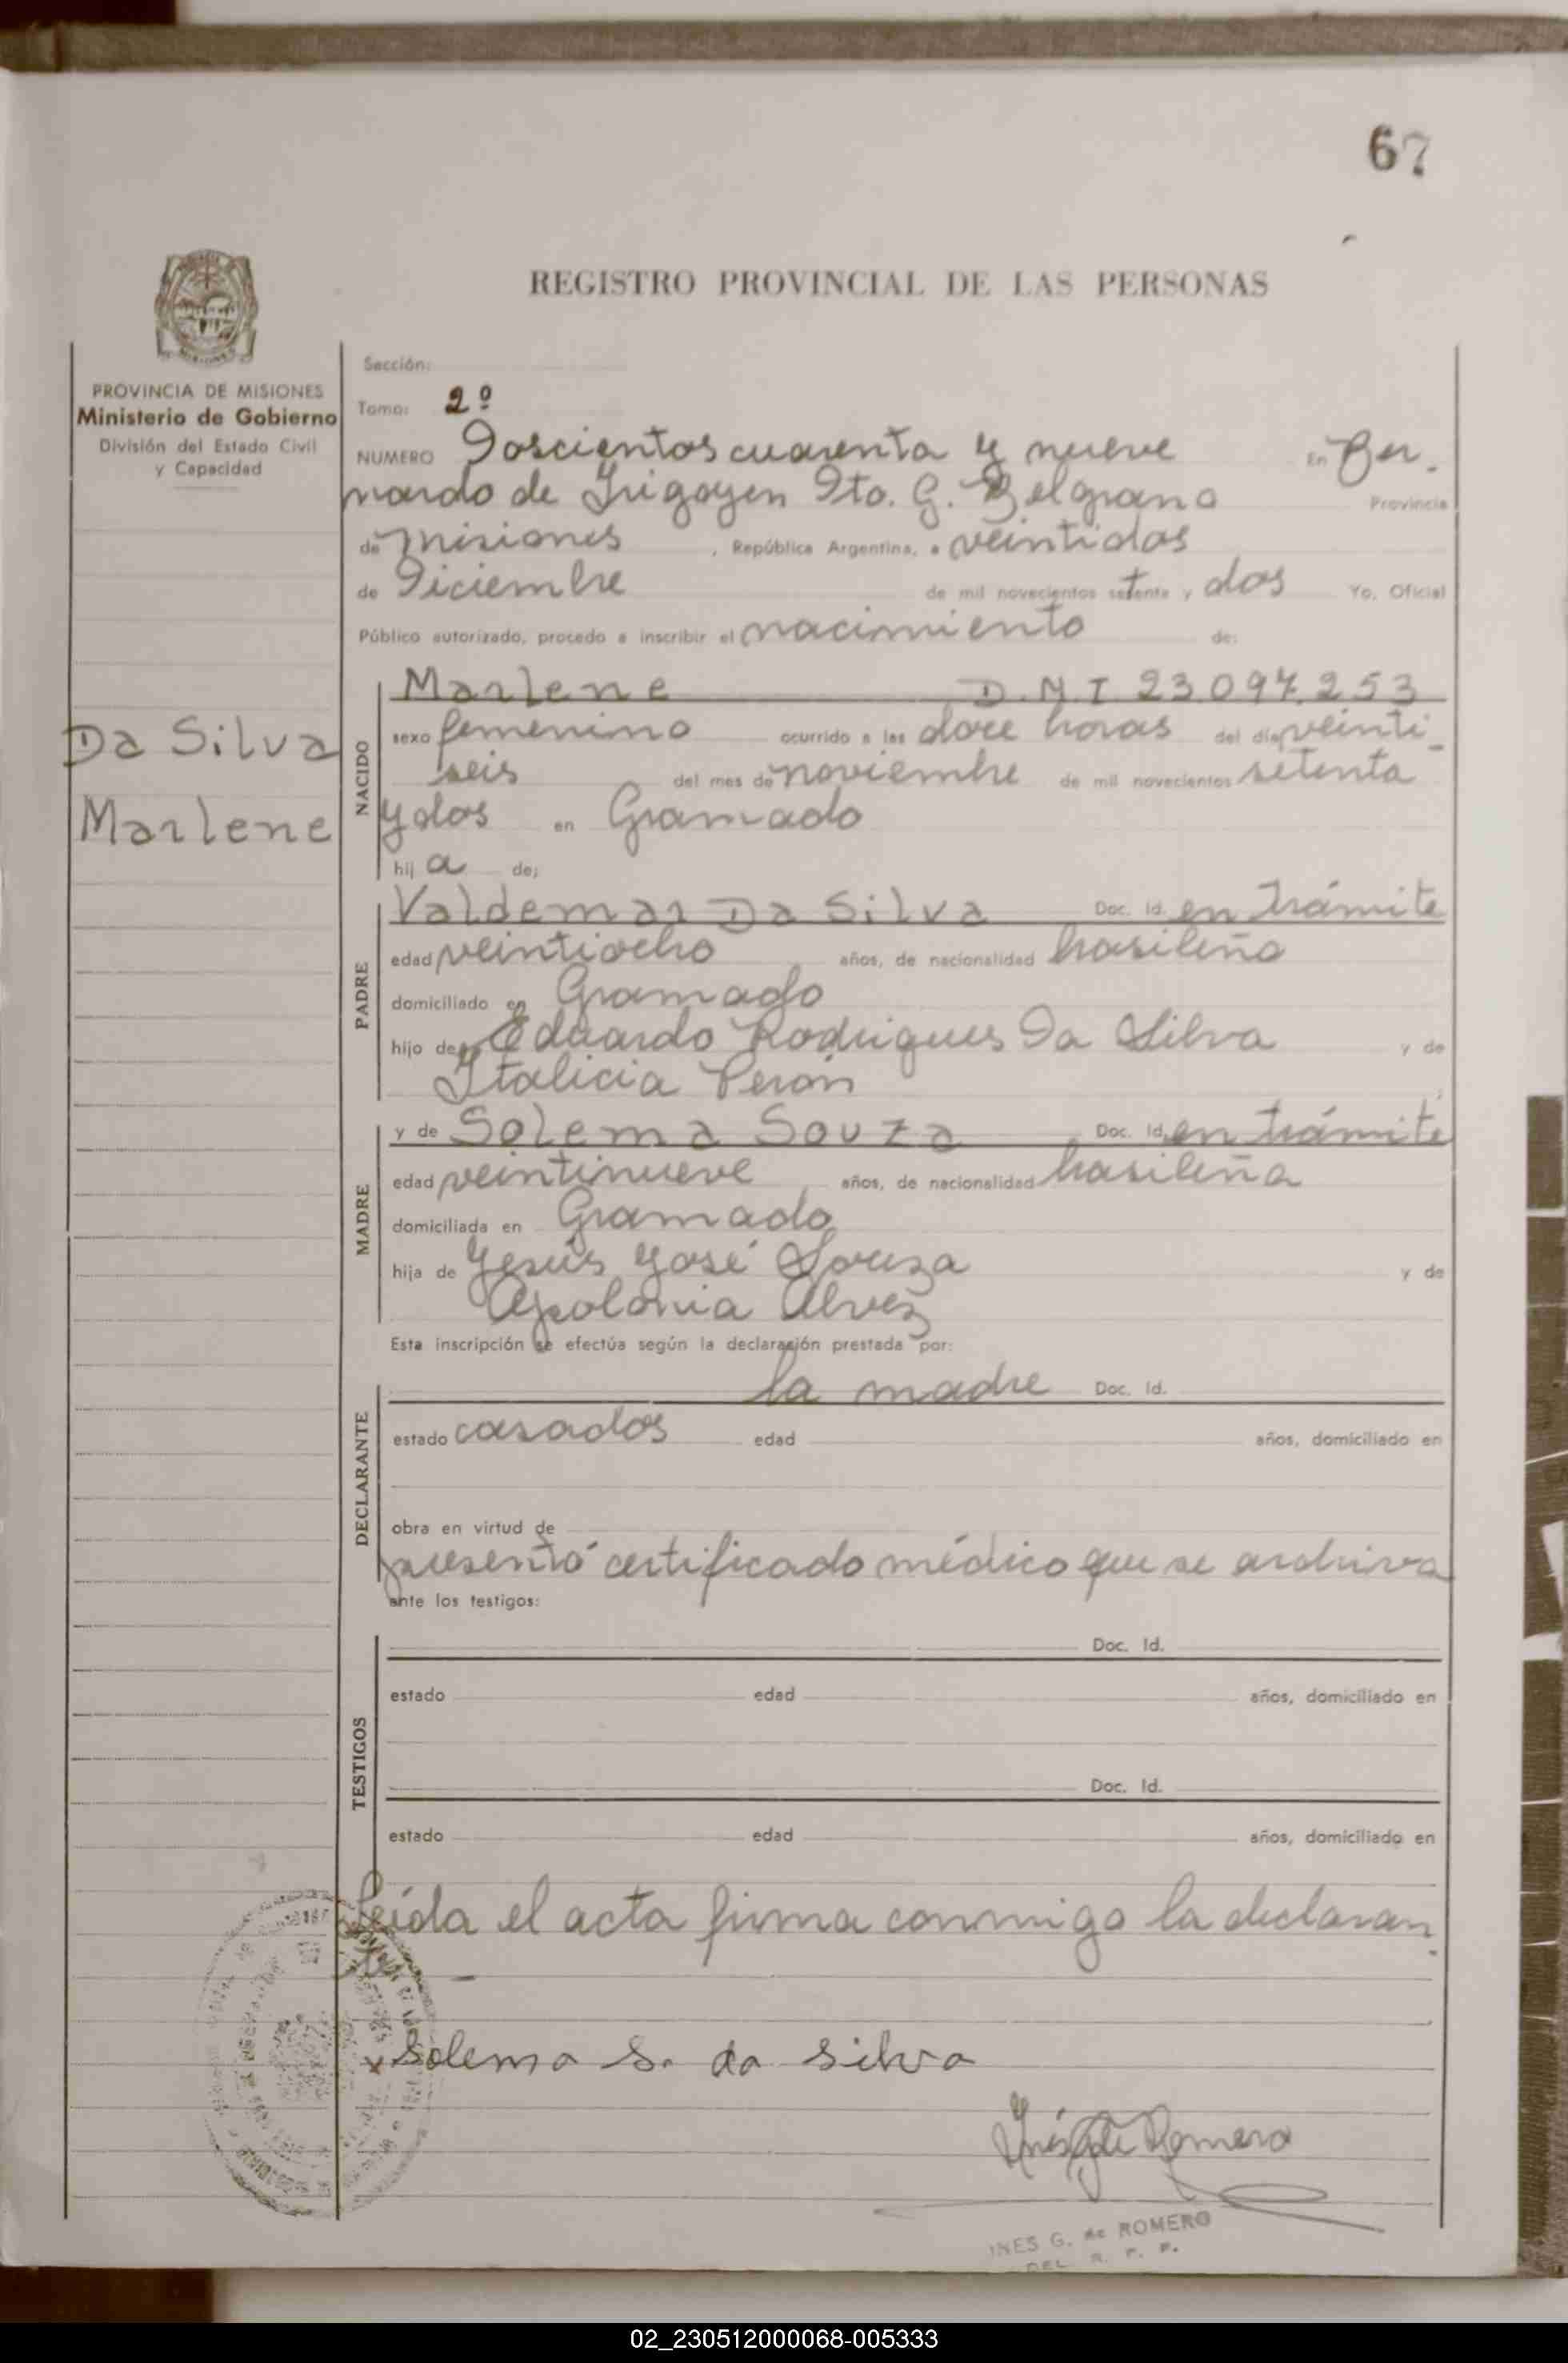 67
REGISTRO PROVINCIAL DE LAS PERSONAS
PROVINCIA DE MISIONES
Ministerio de Gobierno
División del Estado Civil
y Capacidad
Da Silva
Marlene
Sección:
Tomo: 2º
NUMERO Doscientos cuarenta y nueve En Ber-
nardo de Irigoyen Dto. G. Belgrano Provincia
de Misiones, República Argentina, a veintidos
de Diciembre de mil novecientos setenta y dos Yo, Oficial
Público autorizado, procedo a inscribir el nacimiento de:
NACIDO
Marlene D.N.I 23.097.253
sexo femenino ocurrido a las doce horas del día veinti-
seis del mes de noviembre de mil novecientos setenta
y dos en Gramado
hija de;
PADRE
Valdemar Da Silva Doc. Id. en trámite
edad veintiocho años, de nacionalidad brasileña
domiciliado en Gramado
hijo de Eduardo Rodrigues Da Silva y de
Italicia Perón
MADRE
y de Solema Souza Doc. Id. en trámite
edad veintinueve años, de nacionalidad brasileña
domiciliada en Gramado
hija de Jesús José Souza y de
Apolonia Alvez
Esta inscripción se efectúa según la declaración prestada por:
DECLARANTE
la madre Doc. Id.
estado casados edad años, domiciliado en
obra en virtud de
presentó certificado médico que se archiva
ante los testigos:
TESTIGOS
Doc. Id.
estado edad años, domiciliado en
Doc. Id.
estado edad años, domiciliado en
Leída el acta firma conmigo la declaran-
te.-
x Solema S. da Silva
Inés G. de Romero
INES G. de ROMERO
DEL R. P. P.
02_230512000068-005333